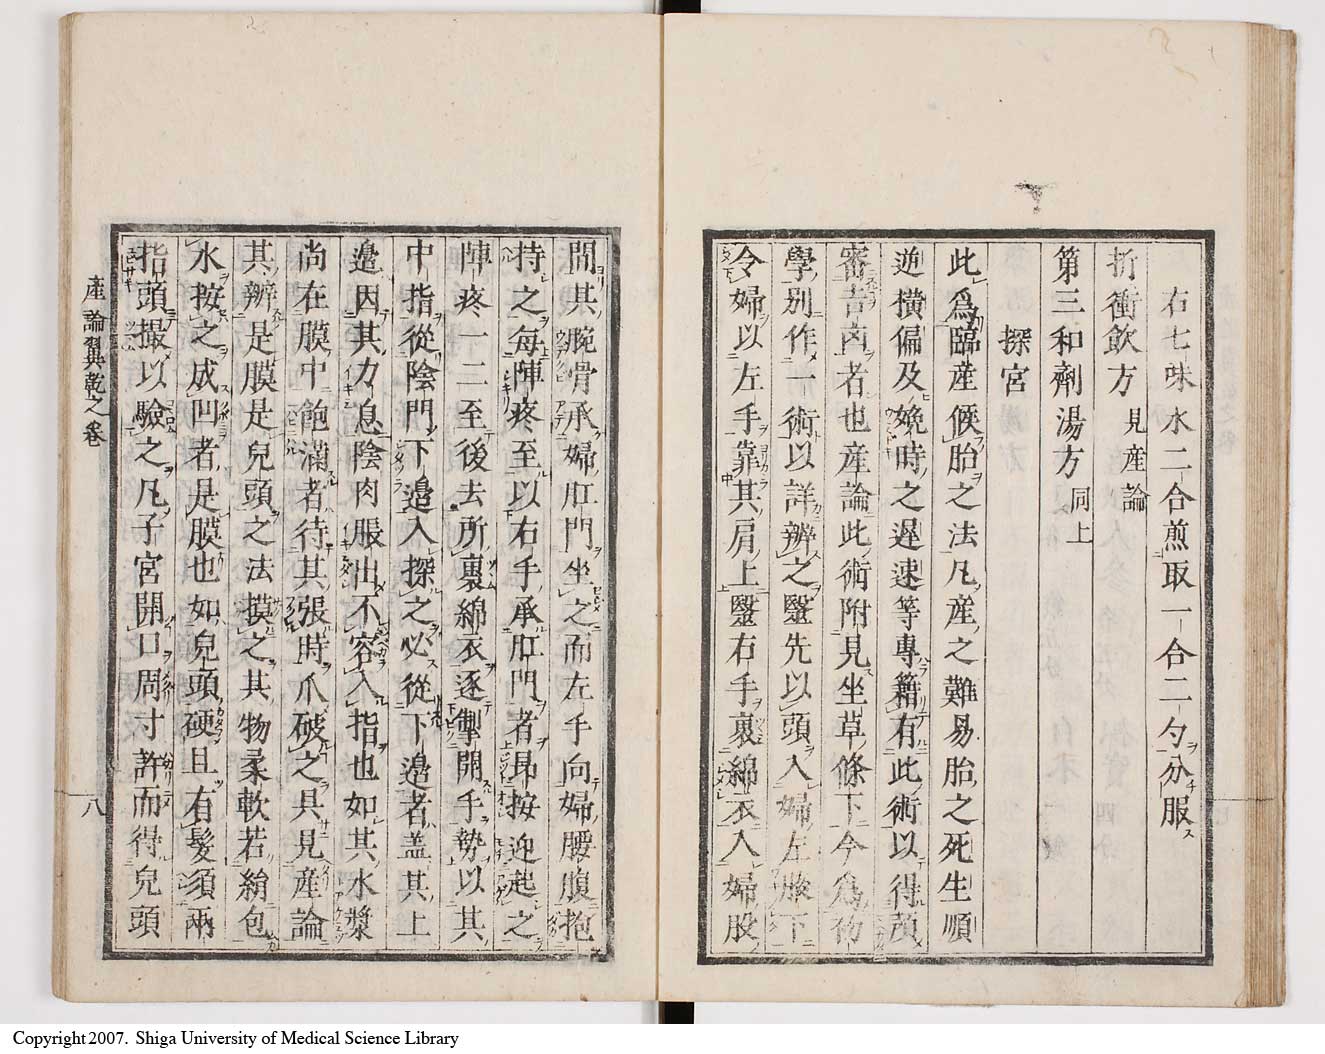 右七味水二合煎取一合二勺分服
折衝飲方 見産論
第三和劑湯方 同上
探宮
此爲臨產候胎之法凡產之難易胎之死生順
逆橫偏及娩時之遲速等專籍有此術以得預
審吉凶者也產論此術附見坐草條下今爲初
學別作一術以詳辨之醫先以頭入婦左腋下
令婦以左手靠其肩上醫右手裏綿衣入婦股
間其腕骨承婦肛門坐之而左手向婦腰腹抱
持之每陣疼至以右手承肛門者昂按迎起之
陣疼一二至後去所裏綿衣逐掣開手勢以其
中指從陰門下邉入探之必從下邉者盖其上
邉因其力息陰肉脹出不容入指也如其水漿
尚在膜中飽滿者待其張時爪破之具見產論
其辨是膜是兒頭之法摸之其物柔軟若綃包
水按之成凹者是膜也如兒頭硬且有髮須兩
指頭撮以驗之凡子宮開口周寸許而得兒頭
產論翼乾之卷
八
Copyright 2007. Shiga University of Medical Science Library